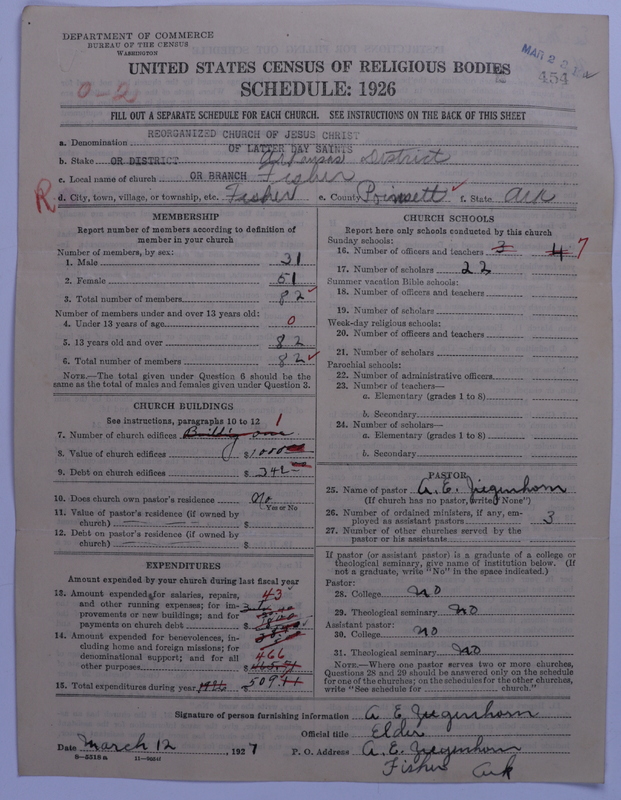 DEPARTMENT OF COMMERCE
BUREAU OF THE CENSUS
WASHINGTON
MAR 22
454
UNITED STATES CENSUS OF RELIGIOUS BODIES
0-2
SCHEDULE: 1926
FILL OUT A SEPARATE SCHEDULE FOR EACH CHURCH. SEE INSTRUCTIONS ON THE BACK OF THIS SHEET
a. Denomination REORGANIZED CHURCH OF JESUS CHRIST
OF LATTER DAY SAINTS
b. Stake OR DISTRICT Arkansas District
c. Local name of church OR BRANCH Fisher
R d. City, town, village, or township, etc. Fisher e. County Poinsett f. State Ark
MEMBERSHIP
Report number of members according to definition of
member in your church
Number of members, by sex:
1. Male 31
2. Female 51
3. Total number of members 82
Number of members under and over 13 years old:
4. Under 13 years of age 0
5. 13 years old and over 82
6. Total number of members 82
NOTE.—The total given under Question 6 should be the
same as the total of males and females given under Question 3.
CHURCH BUILDINGS
See instructions, paragraphs 10 to 12
1
7. Number of church edifices Building one
8. Value of church edifices $1000
9. Debt on church edifices $342
10. Does church own pastor's residence No
Yes or No
11. Value of pastor's residence (if owned by
church) $
12. Debt on pastor's residence (if owned by
church) $
EXPENDITURES
Amount expended by your church during last fiscal year
13. Amount expended for salaries, repairs, 43
and other running expenses; for im-
provements or new buildings; and for
payments on church debt $
14. Amount expended for benevolences, in-
cluding home and foreign missions; for
denominational support; and for all 466
other purposes $
15. Total expenditures during year 1926 $509.
CHURCH SCHOOLS
Report here only schools conducted by this church
Sunday schools:
16. Number of officers and teachers 3 4 7
17. Number of scholars 22
Summer vacation Bible schools:
18. Number of officers and teachers
19. Number of scholars
Week-day religious schools:
20. Number of officers and teachers
21. Number of scholars
Parochial schools:
22. Number of administrative officers
23. Number of teachers—
a. Elementary (grades 1 to 8)
b. Secondary
24. Number of scholars—
a. Elementary (grades 1 to 8)
b. Secondary
PASTOR
25. Name of pastor A. E. Ziegenhorn
(If church has no pastor, write "None")
26. Number of ordained ministers, if any, em-
ployed as assistant pastors 3
27. Number of other churches served by the
pastor or his assistants
If pastor (or assistant pastor) is a graduate of a college or
theological seminary, give name of institution below. (If
not a graduate, write "No" in the space indicated.)
Pastor:
28. College No
29. Theological seminary No
Assistant pastor:
30. College No
31. Theological seminary No
NOTE.—Where one pastor serves two or more churches,
Questions 28 and 29 should be answered only on the schedule
for one of the churches; on the schedules for the other churches,
write "See schedule for church."
Signature of person furnishing information A E Ziegenhorn
Official title Elder
Date March 12, 1927 P. O. Address A. E. Ziegenhorn
8-5518a Fisher Ark